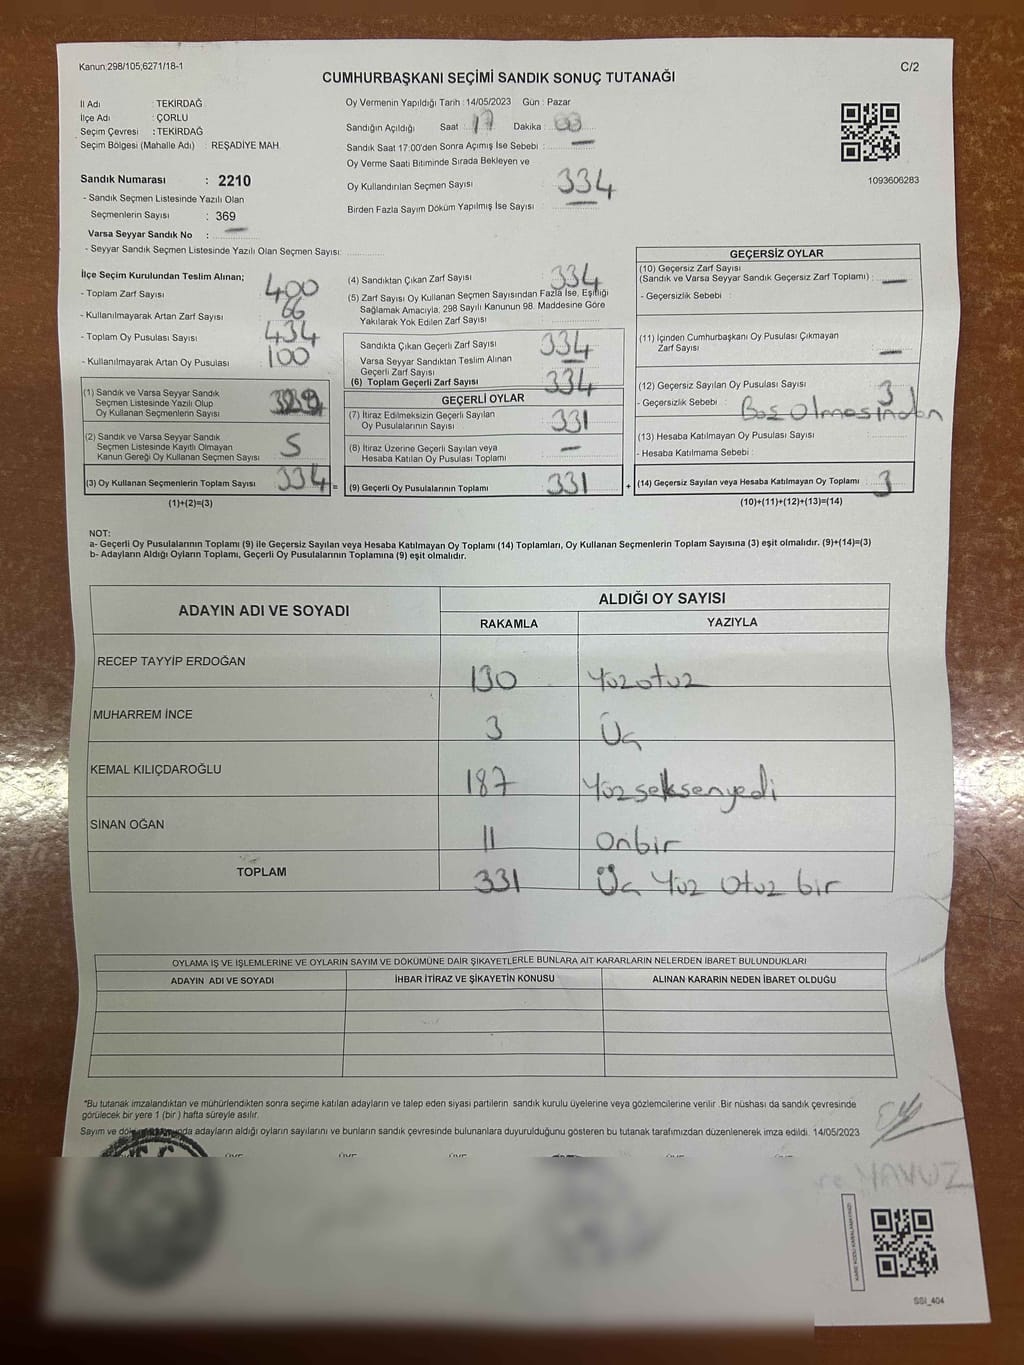 Kanun,298/105,6271/18-1
C/2
CUMHURBAŞKANI SEÇİMİ SANDIK SONUÇ TUTANAĞI
İl Adı : TEKİRDAĞ
İlçe Adı : ÇORLU
Seçim Çevresi : TEKİRDAĞ
Seçim Bölgesi (Mahalle Adı) : REŞADİYE MAH.
Sandık Numarası : 2210
- Sandık Seçmen Listesinde Yazılı Olan
Seçmenlerin Sayısı : 369
Varsa Seyyar Sandık No : —
- Seyyar Sandık Seçmen Listesinde Yazılı Olan Seçmen Sayısı:
Oy Vermenin Yapıldığı Tarih : 14/05/2023 Gün : Pazar
Sandığın Açıldığı Saat : 17 Dakika :
Sandık Saat 17:00'den Sonra Açımış İse Sebebi : —
Oy Verme Saati Bitiminde Sırada Bekleyen ve
Oy Kullandırılan Seçmen Sayısı : 334
Birden Fazla Sayım Döküm Yapılmış İse Sayısı : —
1093606283
İlçe Seçim Kurulundan Teslim Alınan;
- Toplam Zarf Sayısı : 400
- Kullanılmayarak Artan Zarf Sayısı : 66
- Toplam Oy Pusulası Sayısı : 434
- Kullanılmayarak Artan Oy Pusulası : 100
(1) Sandık ve Varsa Seyyar Sandık
Seçmen Listesinde Yazılı Olup
Oy Kullanan Seçmenlerin Sayısı :
(2) Sandık ve Varsa Seyyar Sandık
Seçmen Listesinde Kayıtlı Olmayan
Kanun Gereği Oy Kullanan Seçmen Sayısı : 5
(3) Oy Kullanan Seçmenlerin Toplam Sayısı : 334 =
(1)+(2)=(3)
(4) Sandıktan Çıkan Zarf Sayısı : 334
(5) Zarf Sayısı Oy Kullanan Seçmen Sayısından Fazla İse, Eşitliği
Sağlamak Amacıyla, 298 Sayılı Kanunun 98. Maddesine Göre
Yakılarak Yok Edilen Zarf Sayısı :
Sandıkta Çıkan Geçerli Zarf Sayısı : 334
Varsa Seyyar Sandıktan Teslim Alınan
Geçerli Zarf Sayısı : —
(6) Toplam Geçerli Zarf Sayısı : 334
GEÇERLİ OYLAR
(7) İtiraz Edilmeksizin Geçerli Sayılan
Oy Pusulalarının Sayısı : 331
(8) İtiraz Üzerine Geçerli Sayılan veya
Hesaba Katılan Oy Pusulası Toplamı : —
(9) Geçerli Oy Pusulalarının Toplamı : 331 +
GEÇERSİZ OYLAR
(10) Geçersiz Zarf Sayısı
(Sandık ve Varsa Seyyar Sandık Geçersiz Zarf Toplamı) : —
- Geçersizlik Sebebi :
(11) İçinden Cumhurbaşkanı Oy Pusulası Çıkmayan
Zarf Sayısı : —
(12) Geçersiz Sayılan Oy Pusulası Sayısı : 3
- Geçersizlik Sebebi : Boş Olmasından
(13) Hesaba Katılmayan Oy Pusulası Sayısı :
- Hesaba Katılmama Sebebi :
(14) Geçersiz Sayılan veya Hesaba Katılmayan Oy Toplamı : 3
(10)+(11)+(12)+(13)=(14)
NOT:
a- Geçerli Oy Pusulalarının Toplamı (9) ile Geçersiz Sayılan veya Hesaba Katılmayan Oy Toplamı (14) Toplamları, Oy Kullanan Seçmenlerin Toplam Sayısına (3) eşit olmalıdır. (9)+(14)=(3)
b- Adayların Aldığı Oyların Toplamı, Geçerli Oy Pusulalarının Toplamına (9) eşit olmalıdır.
ADAYIN ADI VE SOYADI
ALDIĞI OY SAYISI
RAKAMLA YAZIYLA
RECEP TAYYİP ERDOĞAN 130 Yüzotuz
MUHARREM İNCE 3 Üç
KEMAL KILIÇDAROĞLU 187 Yüzseksenyedi
SİNAN OĞAN 11 onbir
TOPLAM 331 Üç Yüz Otuz bir
OYLAMA İŞ VE İŞLEMLERİNE VE OYLARIN SAYIM VE DÖKÜMÜNE DAİR ŞİKAYETLERLE BUNLARA AİT KARARLARIN NELERDEN İBARET BULUNDUKLARI
ADAYIN ADI VE SOYADI İHBAR İTİRAZ VE ŞİKAYETİN KONUSU ALINAN KARARIN NEDEN İBARET OLDUĞU
*Bu tutanak imzalandıktan ve mühürlendikten sonra seçime katılan adayların ve talep eden siyasi partilerin sandık kurulu üyelerine veya gözlemcilerine verilir. Bir nüshası da sandık çevresinde
görülecek bir yere 1 (bir) hafta süreyle asılır.
Sayım ve adayların aldığı oyların sayılarını ve bunların sandık çevresinde bulunanlara duyurulduğunu gösteren bu tutanak tarafımızdan düzenlenerek imza edildi. 14/05/2023
YAVUZ
KARE KODU KARALAMAYINIZ!
SSI_404